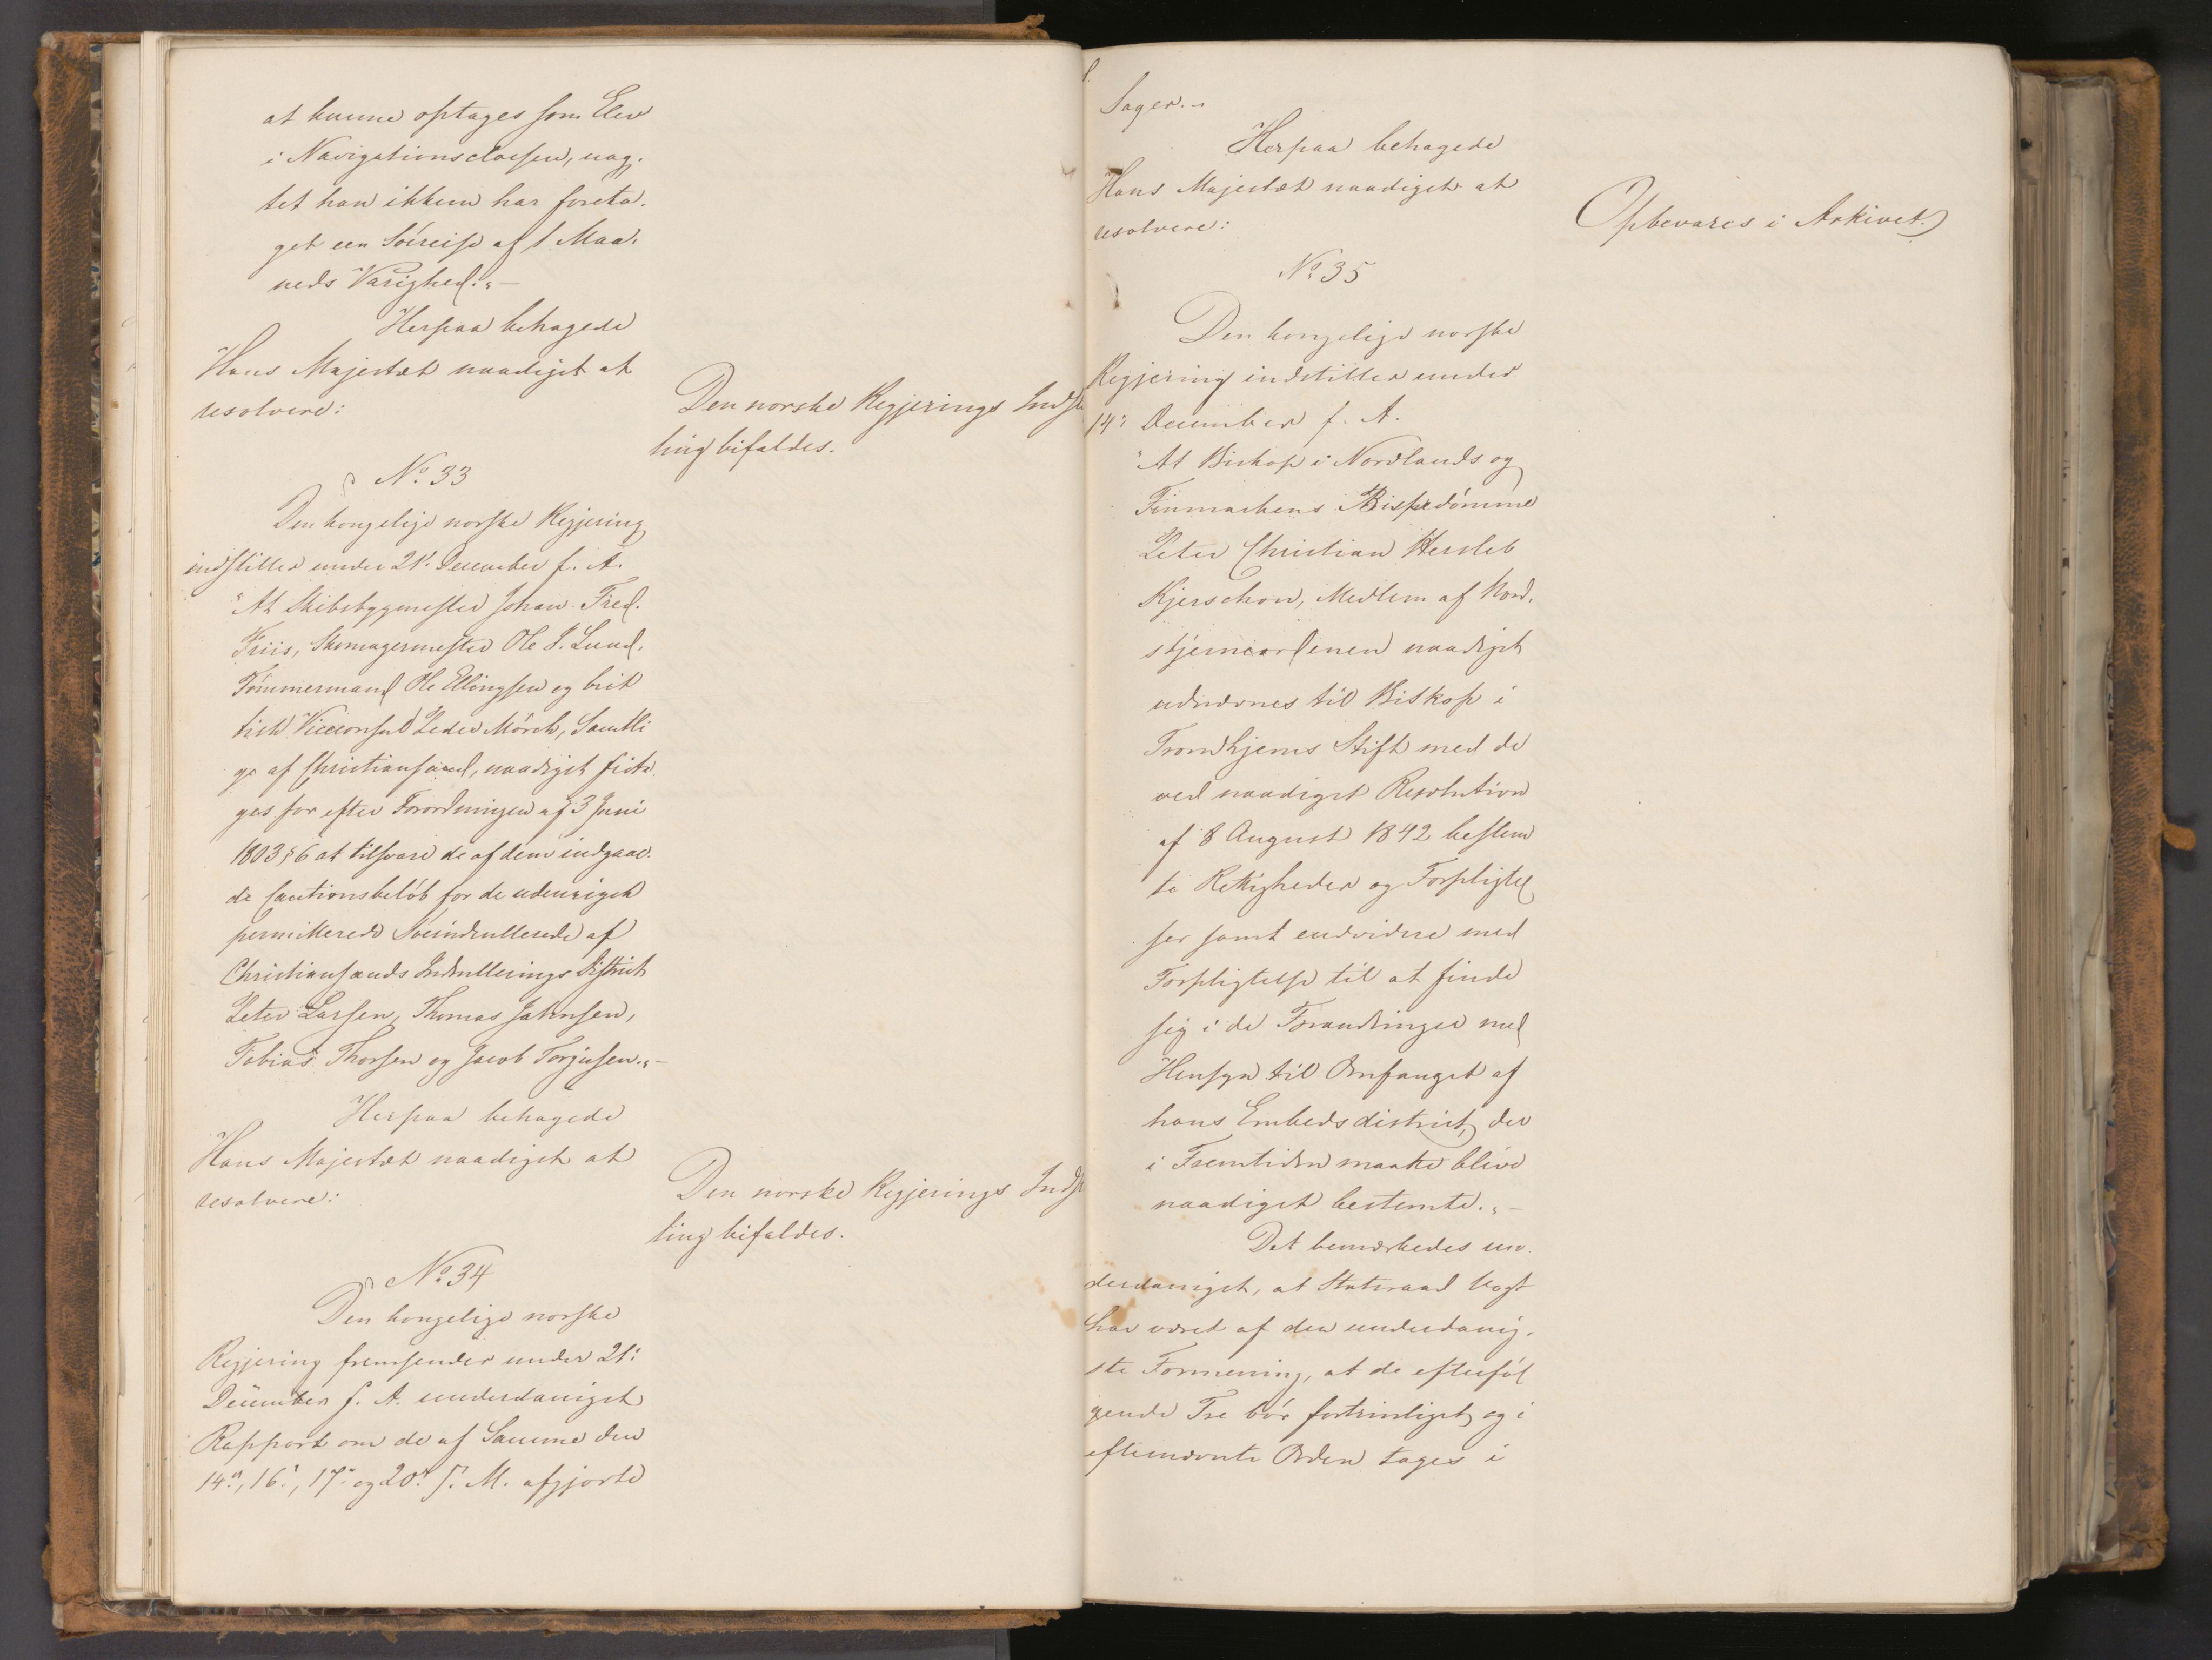 at kunne optages som Elev
i Navigationsclassen, uag-
tet han ikkun har foreta-
get een Söreise af 1 Maa-
neds Varighed." —
Herpaa behagede
Hans Majestæt naadigst at
resolvere:
Den norske Regjerings Indst
ling bifaldes.
No 33
Den kongelige norske Regjering
indstiller under 21' December f. A.
"At Skibsbygmester Johan Fred.
Friis, Skomagermester Ole J. Lund,
Tömmermand Ole Ellingsen og brit
tisk Viceconsul Peder Mörch, Samtli
ge af Christiansand, naadigst frita
ges for efter Forordningen af 3 Juni
1803 § 6 at tilsvare de af dem indgaae-
de Cautionsbelöb for de udenrigsk
permitterede Söeindrullerede af
Christiansands Indrullerings District
Peter Larsen, Thomas Jahnsen,
Tobias Thorsen og Jacob Torjusen." —
Herpaa behagede
Hans Majestæt naadigst at
resolvere:
Den norske Regjerings Indst
ling bifaldes.
No 34
Den kongelige norske
Regjering fremsender under 21'
December f. A. underdanigst
Rapport om de af Samme den
14de, 16', 17' og 20' s. M. afgjorte
Sager."
Herpaa behagede
Hans Majestæt naadigst at
resolvere:
Opbevares i Arkivet.
No 35
Den kongelige norske
Regjering indstiller under
14' December f. A.
"At Biskop i Nordlands og
Finmarkens Bispedömme
Peter Christian Hersleb
Kjerschow, Medlem af Nord-
stjerneordenen naadigst
udnævnes til Biskop i
Trondhjems Stift med de
ved naadigst Resolution
af 8 August 1842 bestem
te Rettigheder og Forpligtel
ser samt endvidere med
Forpligtelse til at finde
sig i de Forandringer med
Hensyn til Omfanget af
hans Embedsdistrict, der
i Fremtiden maatte blive
naadigst bestemte." —
Det bemærkedes un-
derdanigst, at Statsraad Vogt
har været af den underdanig-
ste Formening, at de efterföl
gende Tre bör fortrinligst og i
efternævnte Orden tages i